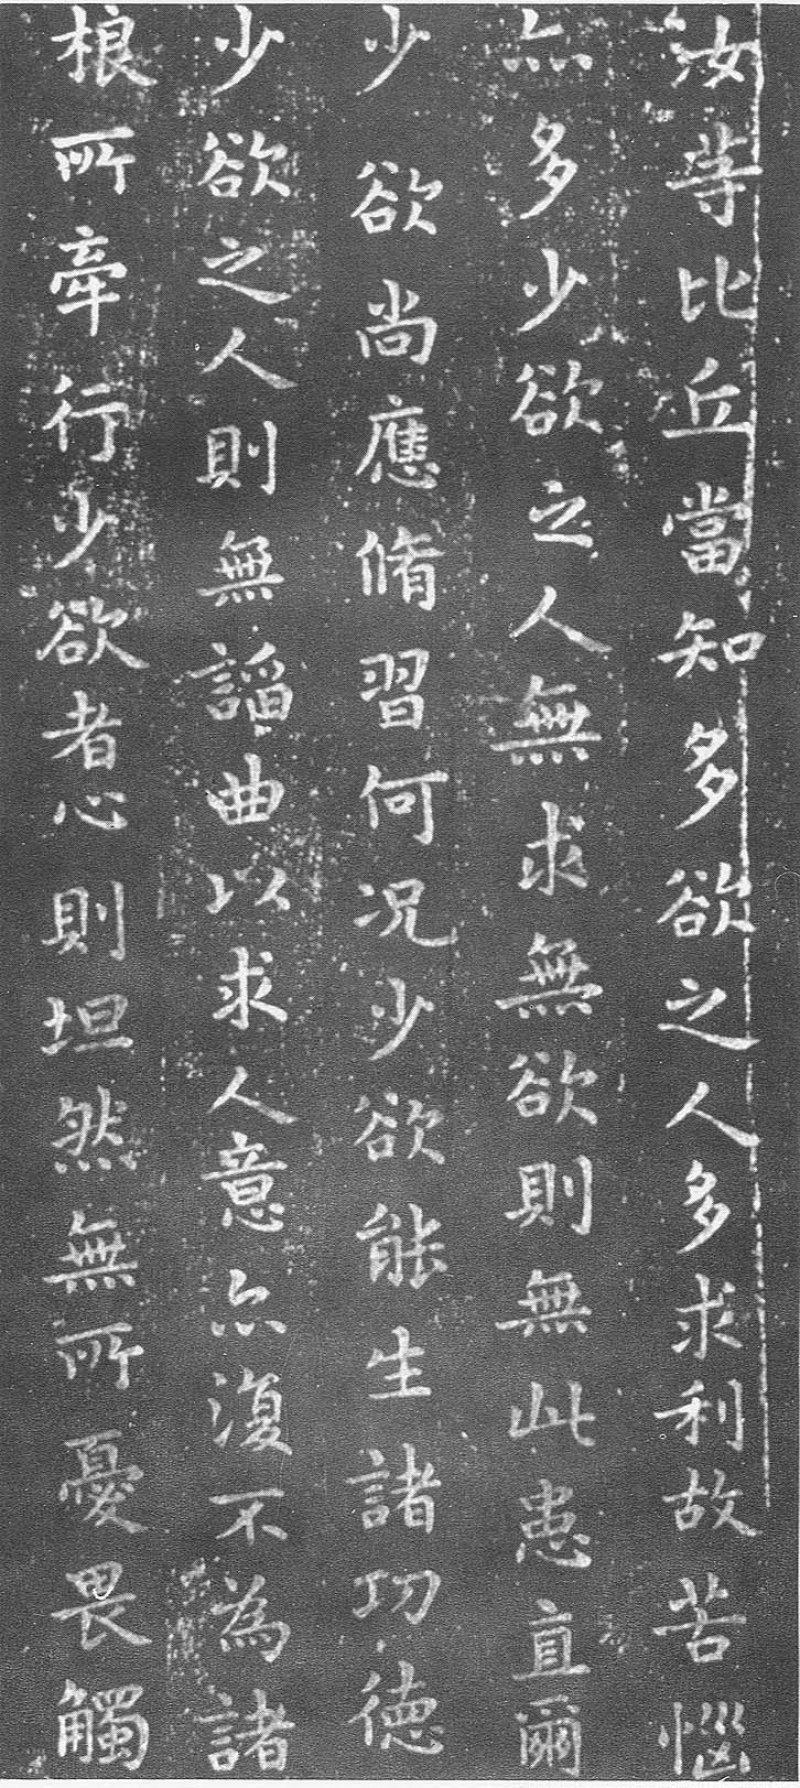 汝等比丘當知多欲之人多求利故苦惱
亦多少欲之人無求無欲則無此患直爾
少欲尚應脩習何況少欲能生諸功德
少欲之人則無諂曲以求人意亦復不為諸
根所牽行少欲者心則坦然無所憂畏觸